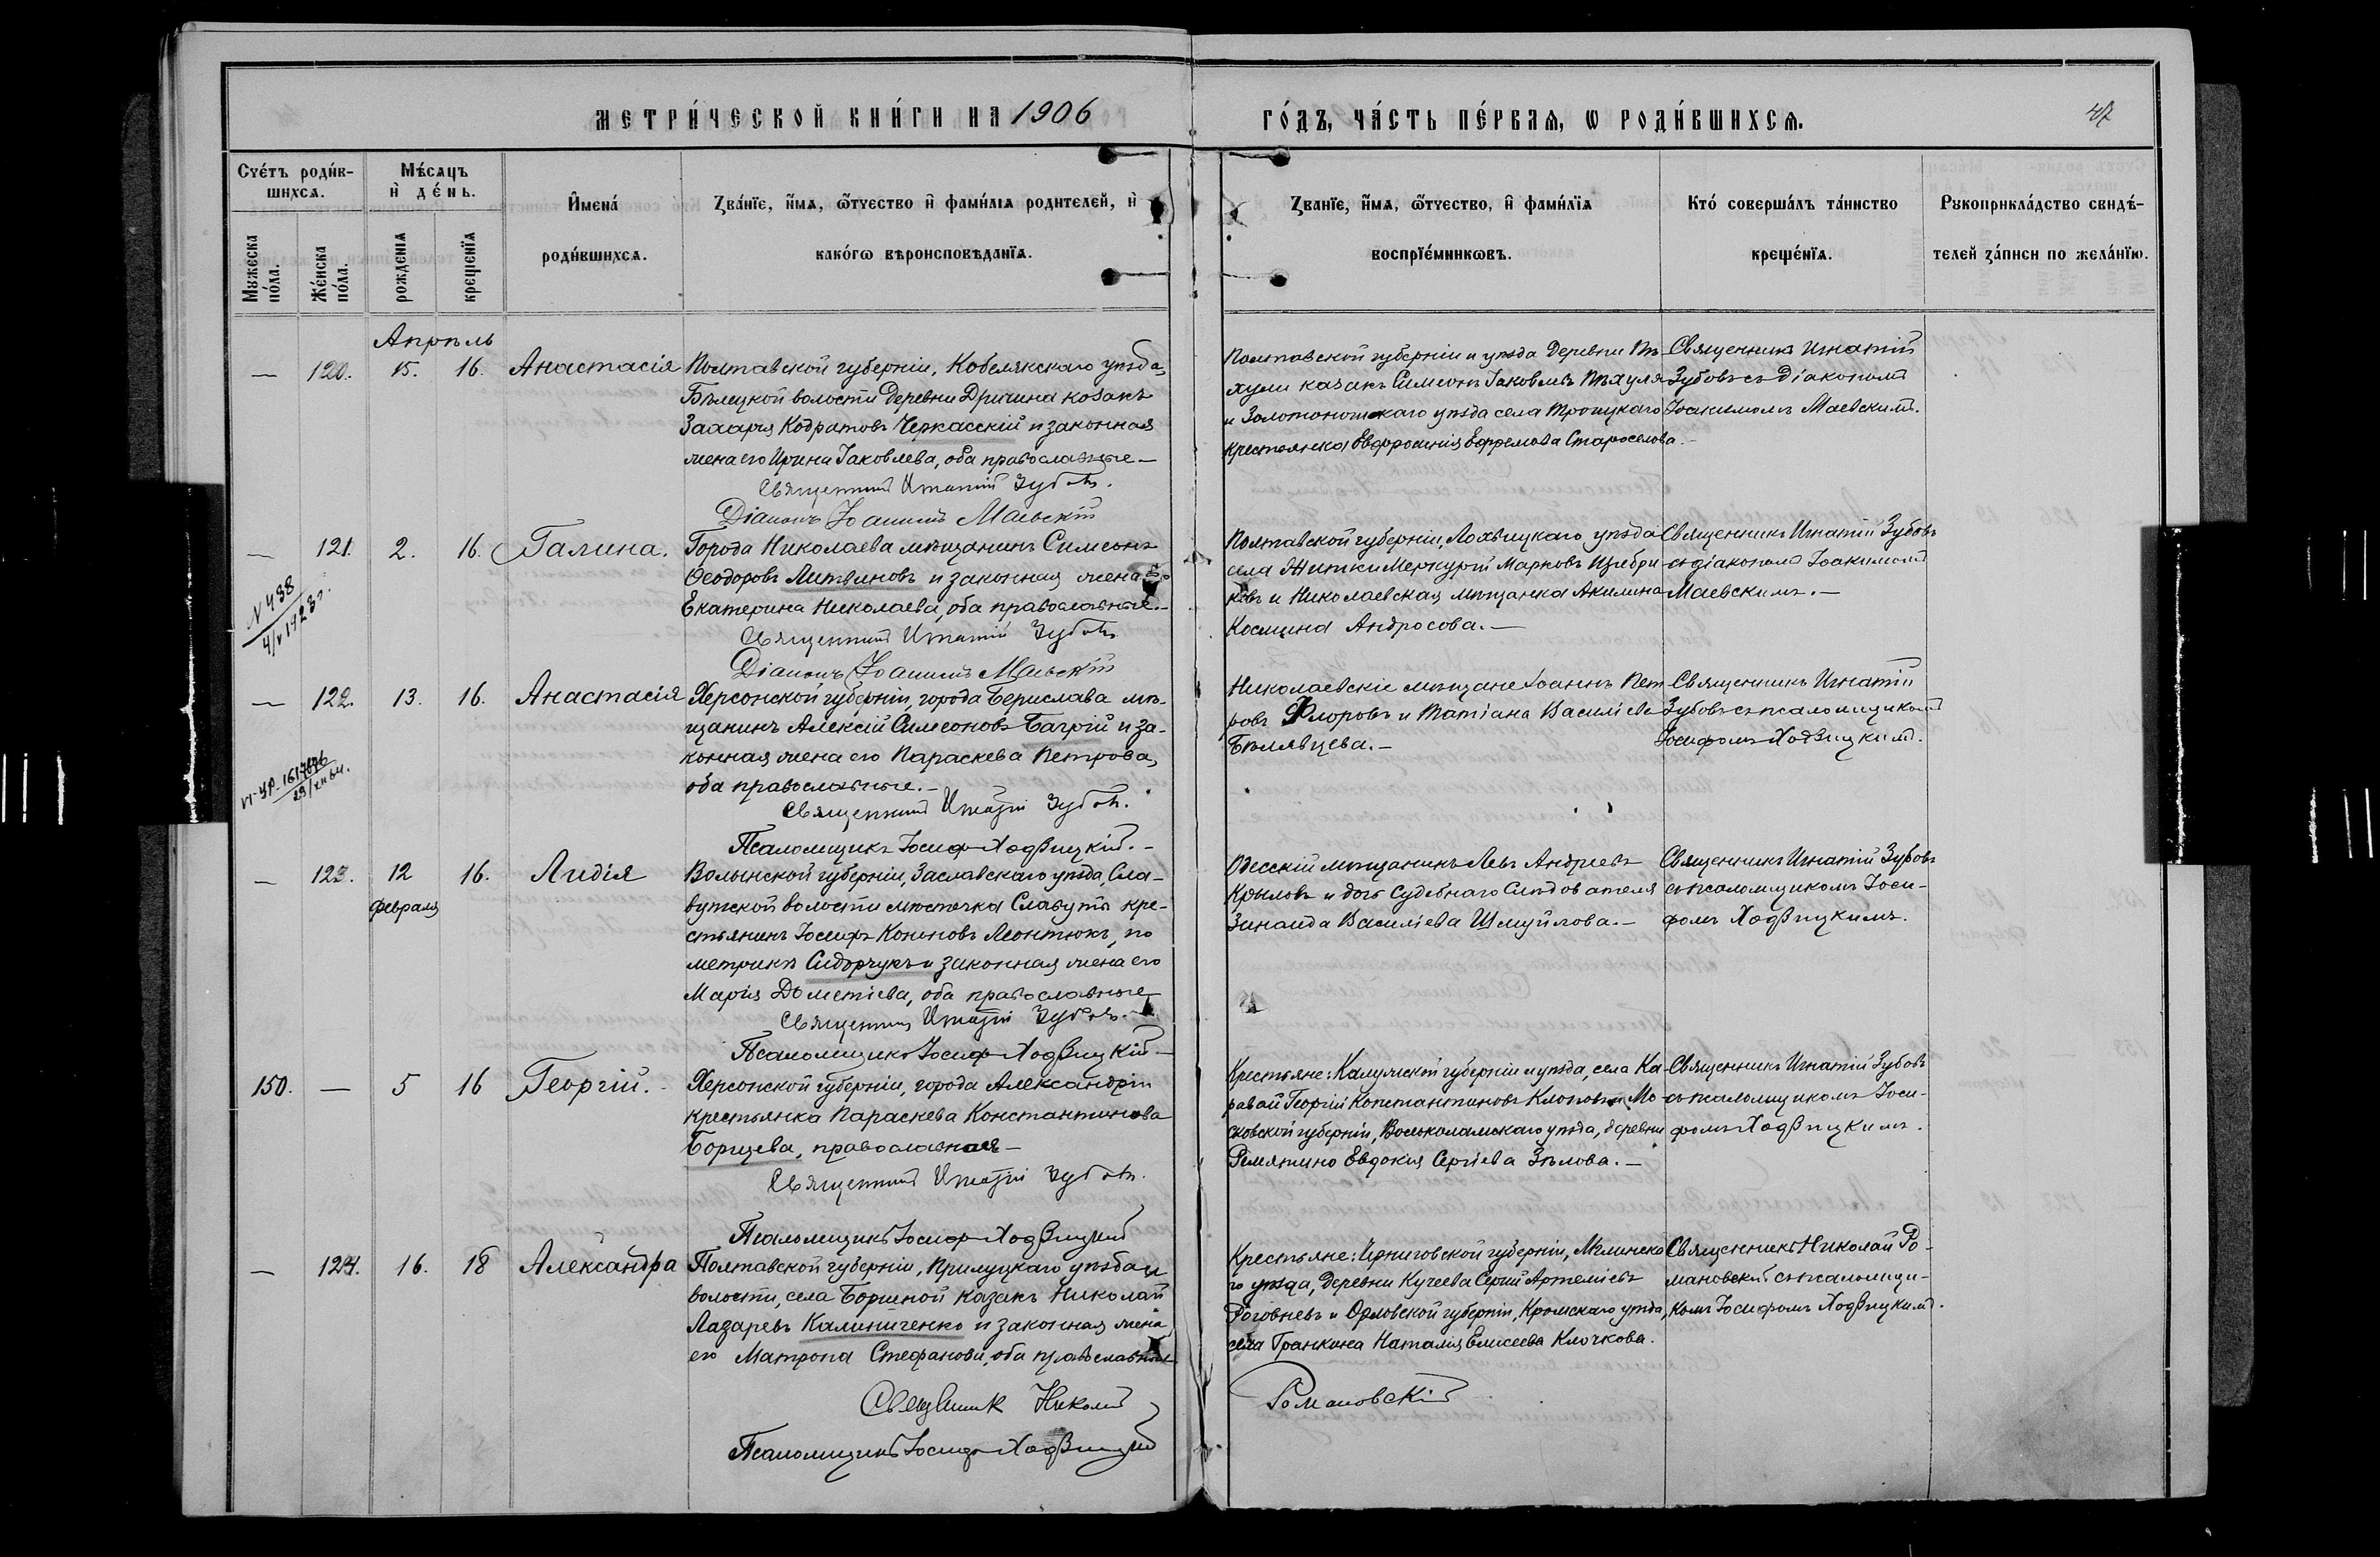 МЕТРИ́ЧЕСКОЙ КНИ́ГИ НА 1906
ГО́ДЪ, ЧА́СТЬ ПЕ́РВАѦ, Ѡ РОДИ́ВШИХСѦ.
47
Сче́тъ роди́в-
шихсѧ.
Мѣ́сѧцъ
и҆ де́нь.
И҆мена́
роди́вшихсѧ.
Зва́нїе, и҆́мѧ, ѻ҆́тчество и҆ фами́лїѧ родителей, и҆
како́гѡ вѣроисповѣданїѧ.
Зва́нїе, и҆́мѧ, ѻ҆́тчество, и҆ фами́лїѧ
воспрїе́мникѡвъ.
Кто́ соверша́лъ та́инство
креще́нїѧ.
Рꙋкоприкла́дство свидѣ́-
телей за́писи по жела́нїю.
Мꙋжеска
по́ла.
Же́нска
по́ла.
рожденїѧ
крещенїѧ
Апрѣль
— 120. 15. 16. Анастасія
Полтавской губерніи, Кобелякскаго уѣзда,
Бѣлецкой волости деревни Дричина козакъ
Захарія Кодратовъ Черкасскій и законная
жена его Ирина Іаковлева, оба православные —
Священникъ Игнатій Зубовъ.
Діаконъ Іоакимъ Маевскій
Полтавской губерніи и уѣзда деревни Пѣ-
хули казакъ Симеонъ Іаковлевъ Пѣхуля
и Золотоношскаго уѣзда села Троицкаго
крестьянка Евфросинія Ефремова Староселова.—
Священникъ Игнатій
Зубовъ съ діакономъ
Іоакимомъ Маевскимъ.
— 121. 2. 16. Галина.
N 438
4/V 1923 г.
Города Николаева мѣщанинъ Симеонъ
Ѳеодоровъ Литвиновъ и законная жена его
Екатерина Николаева, оба православные.—
Священникъ Игнатій Зубовъ
Діаконъ Іоакимъ Маевскій
Полтавской губерніи, Лохвицкаго уѣзда
села Житки Меркурій Марковъ
и Николаевская мѣщанка Акилина
Космина Андросова.—
Священникъ Игнатій Зубовъ
съ діакономъ Іоакимомъ
Маевскимъ.—
— 122. 13. 16. Анастасія
Херсонской губерніи, города Берислава мѣ-
щанинъ Алексій Симеоновъ Багрій и за-
конная жена его Параскева Петрова,
оба православные.—
Священникъ Игнатій Зубовъ.
Псаломщикъ Іосифъ Ходзицкій.—
Николаевскіе мѣщане Іоаннъ Пет-
ровъ Флоровъ и Татіана Василіева
Бѣлявцева.—
Священникъ Игнатій
Зубовъ съ псаломщикомъ
Іосифомъ Ходзицкимъ.
— 123. 12 16. Лидія
февраля
Волынской губерніи, Заславскаго уѣзда, Сла-
вутской волости мѣстечка Славуты кре-
стьянинъ Іосифъ Кононовъ Леонтюкъ, по
метрикѣ Сидорчукъ и законная жена его
Марія Дометіева, оба православные
Священникъ Игнатій Зубовъ.—
Псаломщикъ Іосифъ Ходзицкій —
Одесскій мѣщанинъ Левъ Андреевъ
Крыловъ и дочь Судебнаго Слѣдователя
Зинаида Василіева Шмуйлова.—
Священникъ Игнатій Зубовъ
съ псаломщикомъ Іоси-
фомъ Ходзицкимъ.
150. — 5 16 Георгій.—
Херсонской губерніи, города Александріи
крестьянка Параскева Константинова
Борщева, православная —
Священникъ Игнатій Зубовъ.
Псаломщикъ Іосифъ Ходзицкій
Крестьяне: Калужской губерніи и уѣзда, села Ка-
равай Георгій Константиновъ Клоповъ и Мо-
сковской губерніи, Волоколамскаго уѣзда, деревни
Ремягино Евдокія Сергіева Зѣлова.—
Священникъ Игнатій Зубовъ
съ псаломщикомъ Іоси-
фомъ Ходзицкимъ.
— 124. 16. 18 Александра
Полтавской губерніи, Прилуцкаго уѣзда и
волости, села Боршной казакъ Николай
Лазаревъ Калиниченко и законная жена
его Матрона Стефанова, оба православные
Священникъ Николай
Романовскій
Псаломщикъ Іосифъ Ходзицкій
Крестьяне: Черниговской губерніи, Мглинска-
го уѣзда, деревни Кучеева Сергій Артеміевъ
Роговцевъ и Орловской губерніи, Кромскаго уѣзда,
села Гранкина Наталія Елисеева Клочкова.
Священникъ Николай Ро-
мановскій съ псаломщи-
комъ Іосифомъ Ходзицкимъ.